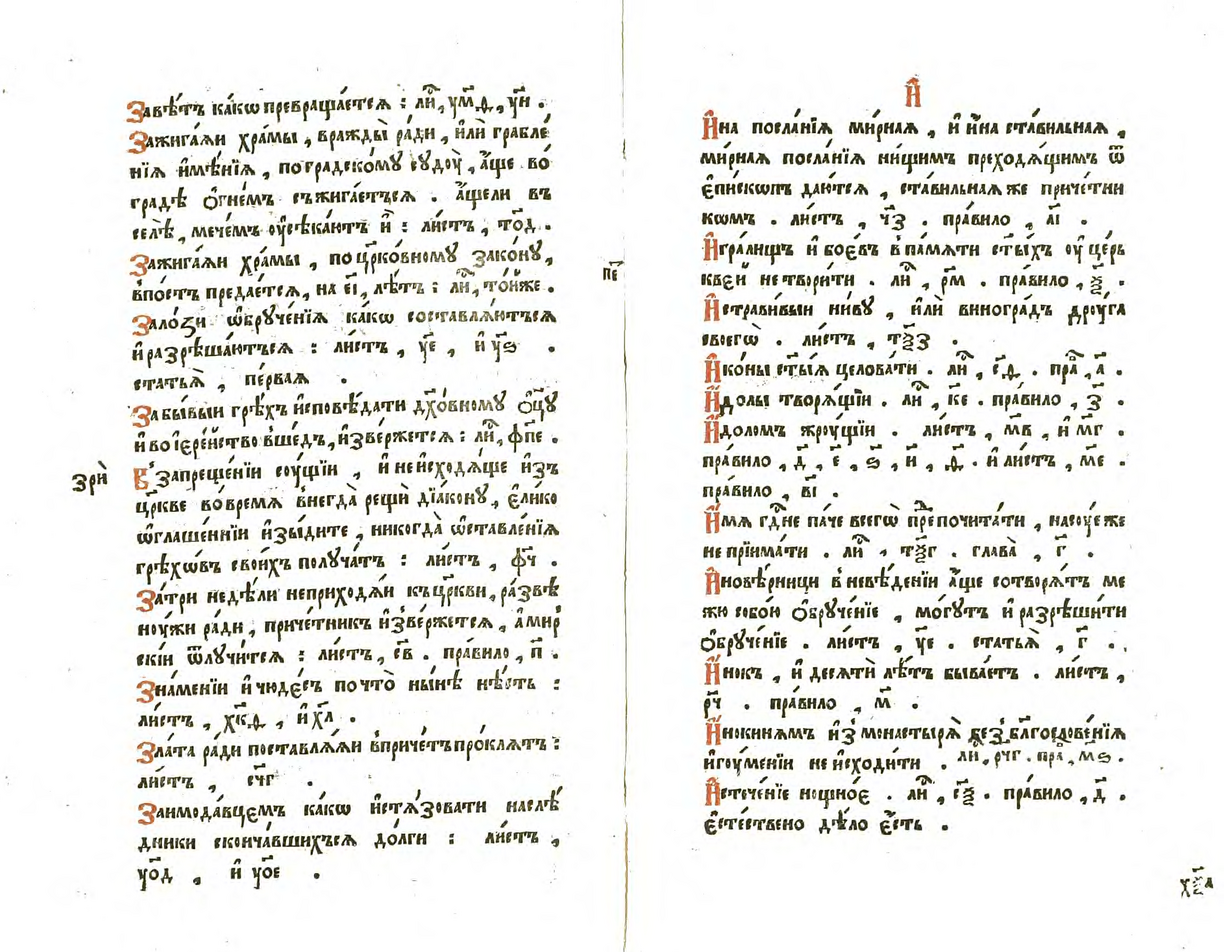 Завѣ́тъ ка́кѡ превраща́етсѧ : ли́, ум҃ѳ, ун҃ .
Зажига́ѧи хра́мы , вражды̀ ра́ди , и҆лѝ грабле́
нїѧ и҆мѣ́нїѧ , по градско́му судоу̀ , а҆́ще во́
градѣ ѻ҆гне́мъ съжига́етъсѧ . а҆́щели въ
селѣ̀ , мече́мъ оу҆сѣка́ютъ и҆̀ : ли́стъ , то҃д .
Зажига́ѧи хра́мы , по цр҃ко́вному зако́ну ,
впо́стъ предае́тсѧ , на е҃і , лѣ́тъ : ли́ , то́йже .
Зало́зи ѡ҆бруче́нїѧ ка́кѡ составлѧ́ютъсѧ
и҆ разрѣша́ютъсѧ : ли́стъ , у҃е , и҆ у҃ѕ .
статьѧ̀ , пе́рваѧ .
Забы́выи грѣ́хъ и҆сповѣ́дати дх҃о́вному ѻ҆ц҃у̀
и҆ во і҆ере́йство вше́дъ , и҆зве́ржетсѧ : ли́ , фп҃е .
зрѝ
В̾ запреще́нїи соу́щїи , и҆ не и҆сходѧ́ще и҆зъ
цр҃кве во вре́мѧ внегда̀ рещѝ дїа́кону , є҆ли́ко
ѡ҆глаше́ннїи и҆зы́дите , никогда̀ ѡ҆ставле́нїѧ
грѣхѡ́въ свои́хъ полу́чатъ : ли́стъ , ф҃ч .
За три недѣ́ли неприходѧ́и къ цр҃кви , ра́звѣ
ноу́жи ра́ди , приче́тникъ и҆зве́ржетсѧ , а҆ мир
скі́и ѿлу́читсѧ : ли́стъ , с҃в . пра́вило , п҃ .
Зна́менїи и҆ чюде́съ почто̀ ны́нѣ нѣ́сть :
ли́стъ , хк҃ѳ , и҆ х҃л .
Зла́та ра́ди поставлѧ́ѧи вприче́тъ про́клѧтъ :
ли́стъ , сч҃г .
Заимода́вцемъ ка́кѡ и҆стѧ́зовати наслѣ́
дники сконча́вшихъсѧ до́лги : ли́стъ ,
уо҃д , и҆ уо҃е .
п҃е
И҆
И҆на посла́нїѧ ми́рнаѧ , и҆ и҆́на ста́вильнаѧ ,
ми́рнаѧ посла́нїѧ ни́щимъ преходѧ́щимъ ѿ
є҆пи́скопъ даю́тсѧ , ста́вильнаѧ же приче́тни
кѡмъ . ли́стъ , ч҃з . пра́вило , а҃і .
И҆гра́лищъ и҆ бо́євъ в па́мѧти ст҃ы́хъ оу҆ це́рь
квєй не твори́ти . ли́ , р҃м . пра́вило , ѯ҃ .
И҆стра́вивыи ни́ву , и҆лѝ виногра́дъ дроу́га
своегѡ̀ . ли́стъ , тѯ҃з .
И҆ко́ны ст҃ы́ѧ целова́ти . ли́ , с҃ѳ . пра́ , а҃ .
И҆́долы творѧ́щїи . ли́ , к҃е . пра́вило , з҃ .
И҆́доломъ жроу́щїи . ли́стъ , м҃в , и҆ м҃г .
пра́вило , д҃ , е҃ , ѕ҃ , и҃ , ѳ҃ . и҆ ли́стъ , м҃е .
пра́вило , в҃і .
И҆́мѧ гд҃не па́че всегѡ̀ препочита́ти , на суеже
не прїима́ти . ли́ , тѯ҃г . глава̀ , г҃ .
И҆новѣ́рници в невѣ́денїи а҆́ще сотворѧ́тъ ме
жю собо́ю ѻ҆бруче́нїе , мо́гутъ и҆ разрѣши́ти
ѻ҆бруче́нїе . ли́стъ , у҃е . статьѧ̀ , г҃ .
И҆́нокъ , и҆ десѧтѝ лѣ́тъ быва́етъ . ли́стъ ,
р҃ч . пра́вило , м҃ .
И҆́нокинѧмъ и҆з монастырѧ̀ без̾ благослове́нїѧ
и҆гоу́менїи не и҆сходи́ти . ли́ , рч҃г . пра́ , м҃ѕ .
И҆стече́нїе нощно́є . ли́ , сѯ҃ . пра́вило , д҃ .
є҆сте́ствено дѣ́ло є҆́сть .